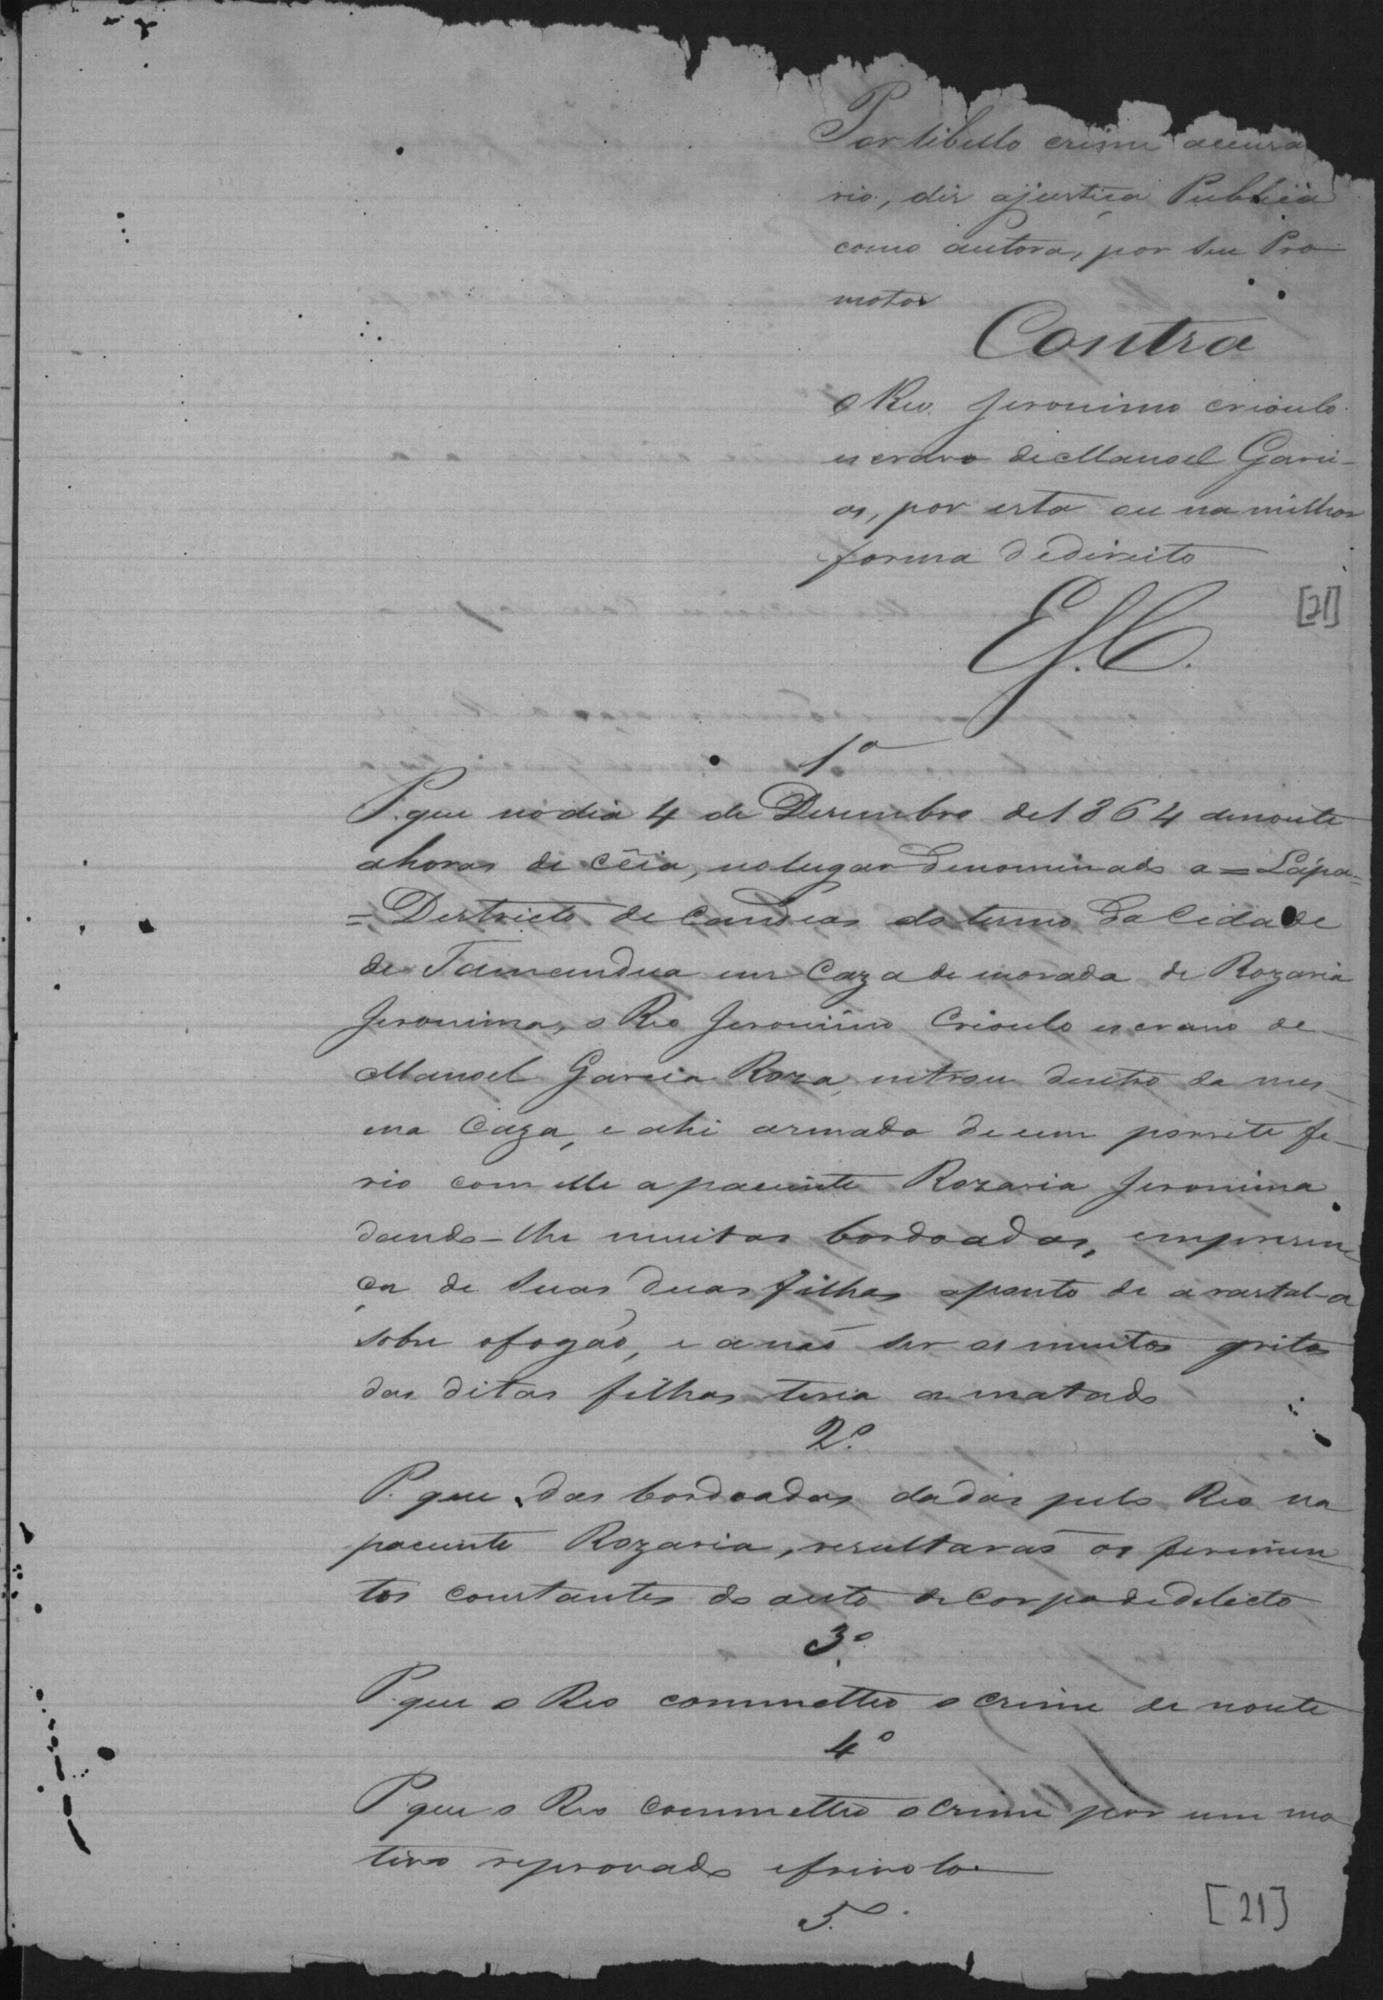 Por libello crime accusa
rio, diz ajustiça Publica
como autora, por seu Pro
motor
Contra
o Reo Jeronimo crioulo
escravo deManoel Garci-
as, por esta ou na milhor
forma dedireito
E.S.C.
[21]
1º
P. que nodia 4 de Dezembro de1864 denoute
ahoras de cêia, nolugar denominado a = Lápa=
= Destricto de Candeas do termo da Cidade
de Tamandua em Caza de morada de Rozaria
Jeronima, o Reo Jeronimo Crioulo escravo de
Manoel Garcia Roza, entrou dentro da mes-
ma Caza, e ahi armado de um porrete fe-
rio com elle apaciente Rozaria Jeronima
dando-lhe muitas bordoadas, empresen-
ça de suas duas filhas aponto de arastal-a
sobre ofogão, e anão ser os muitos gritos
das ditas filhas teria a matado
2º
P. que das bordoadas dadas pelo Reo na
paciente Rozaria, resultarão os ferimen
tos constantes do auto de Corpo dedelicto
3º
P. que o Reo commetteo o crime de noute
4º
P. que o Reo commetteo o crime por um mo
tivo reprovado efrivolo
5º
[21]